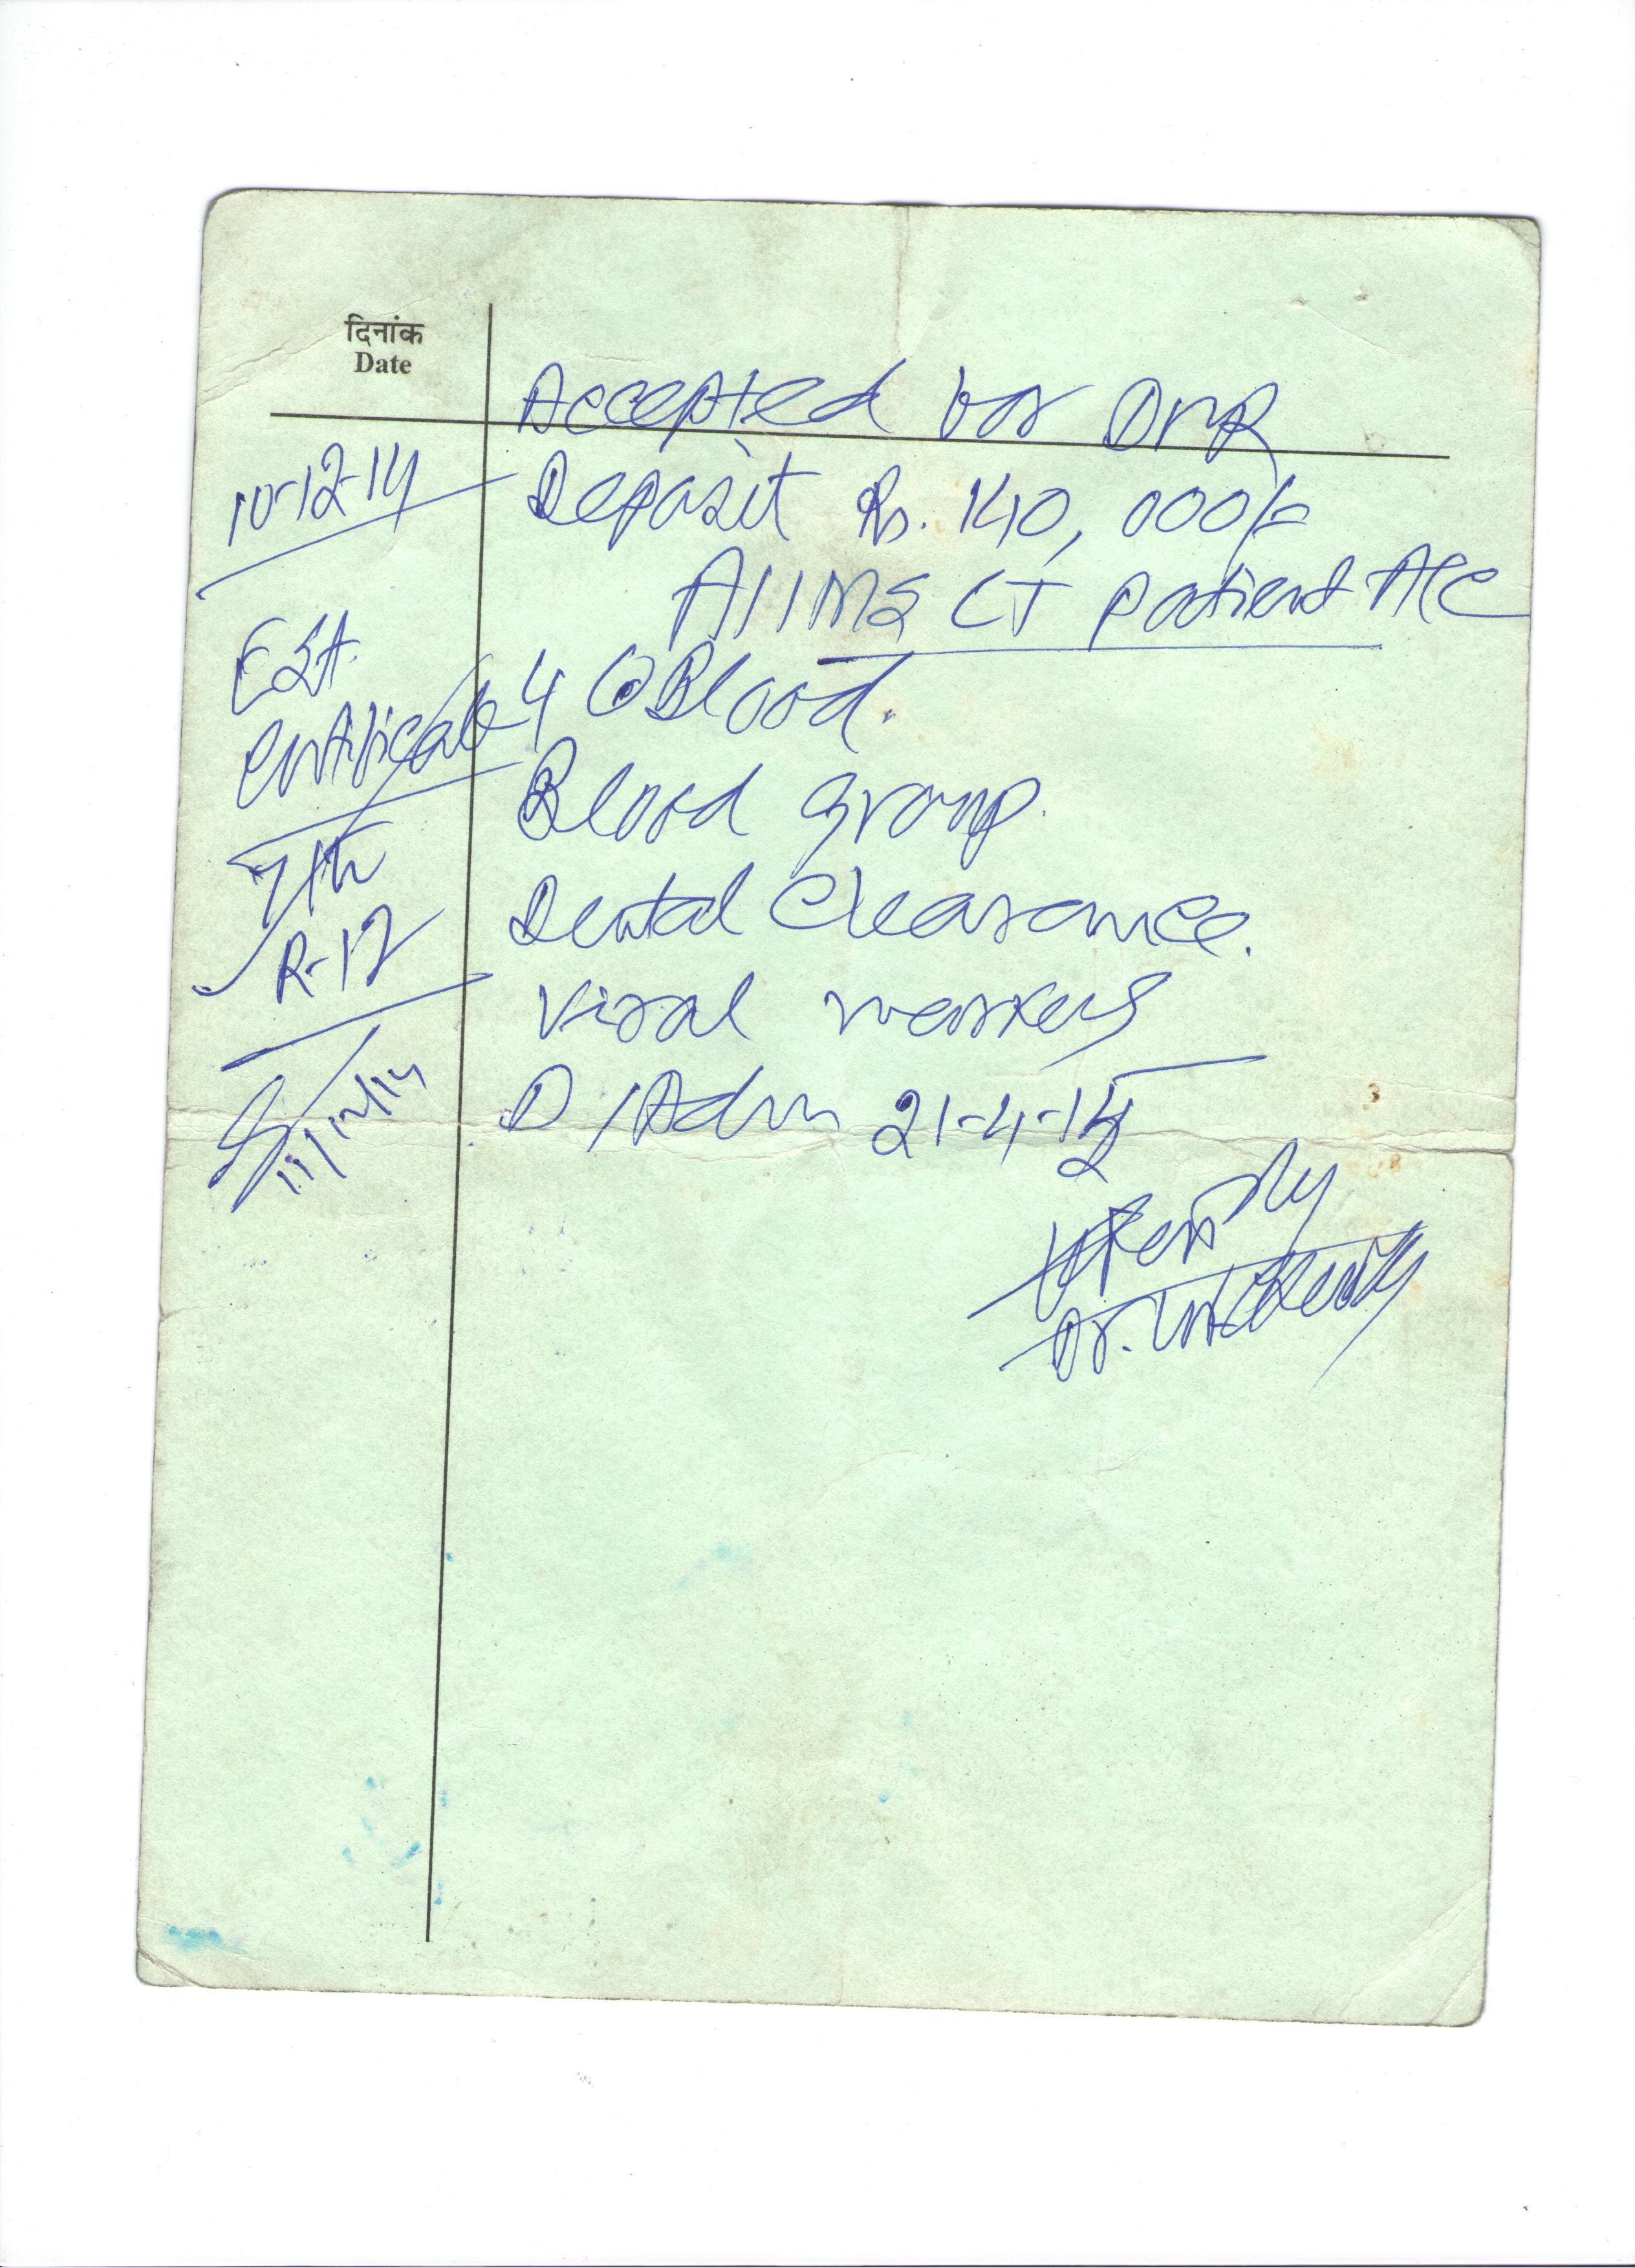 दिनांक
Date
Accepted for DVR
10-12-14
Deposit Rs. 140,000/-
AIIMS CT patient A/C
Est.
Certificate
4 Blood.
Blood group.
7th
R-12
Dental Clearance.
Viral markers
11/12/14
D/Adm 21-4-15
Dr.